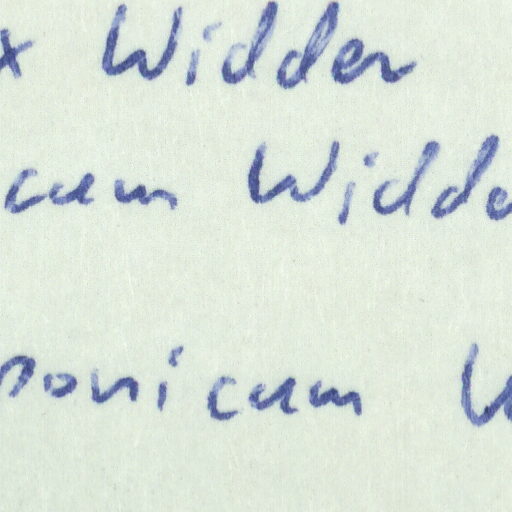 x Widder
cum Widde
ponicum W